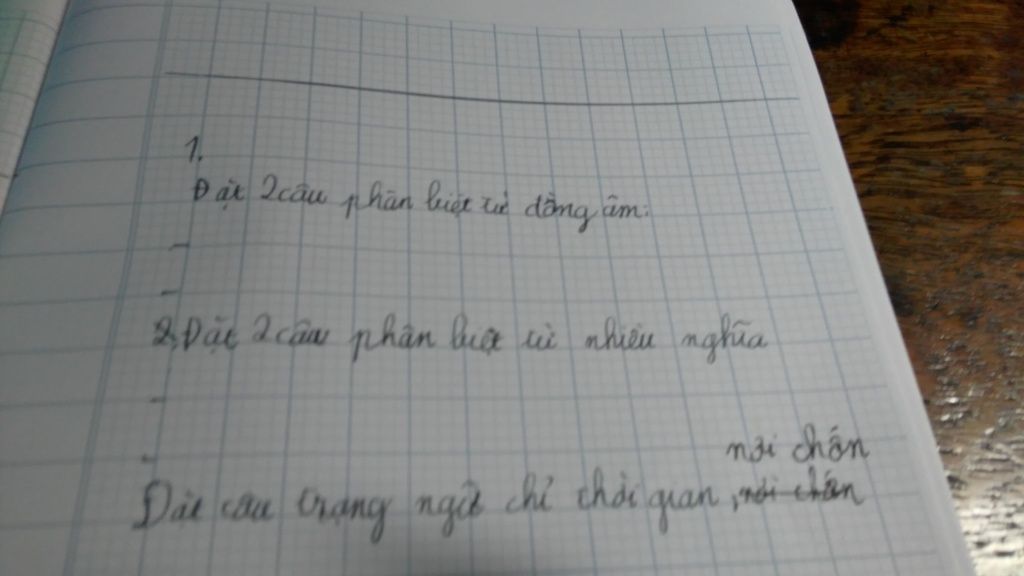 1.
Đặt 2 câu phân biệt từ đồng âm:
-
-
2, Đặt 2 câu phân biệt từ nhiều nghĩa
-
-
nơi chốn
Đặt câu trạng ngữ chỉ thời gian, nơi chốn